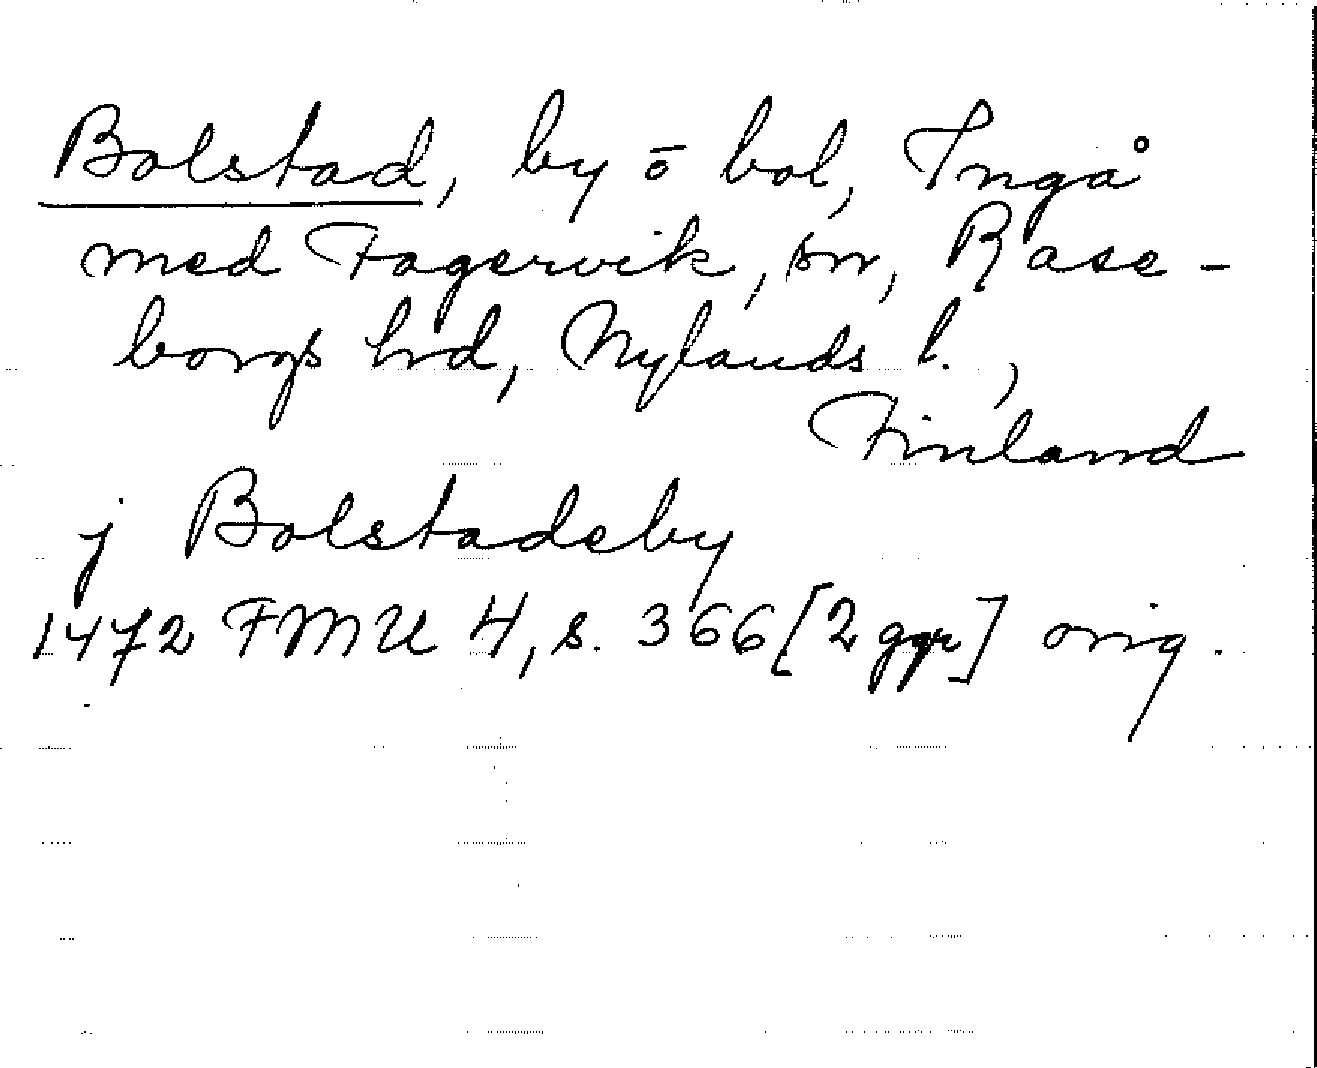 Bolstad, by o bol, Ingå
med Fagervik, sn, Rase-
borgs hrd, Nylands l.,
Finland
j Bolstadeby
1472 FMU 4, s. 366 [2 ggr] orig.